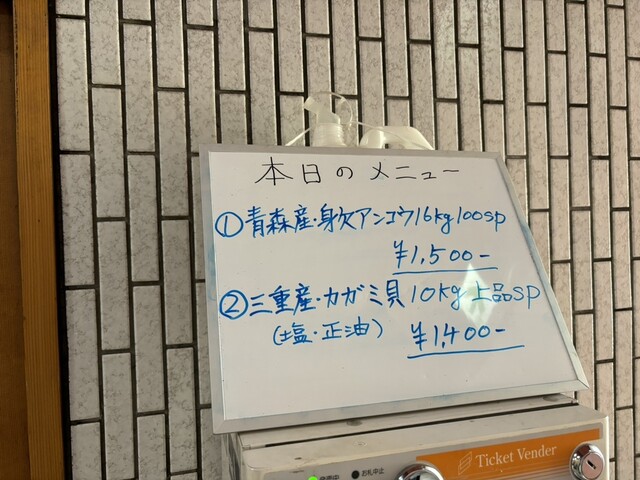 本日のメニュー
①青森産・身欠アンコウ16kg100sp
¥1,500-
②三重産・カガミ貝10kg上品SP
(塩・正油) ¥1,400-
お札中止
Ticket Vender